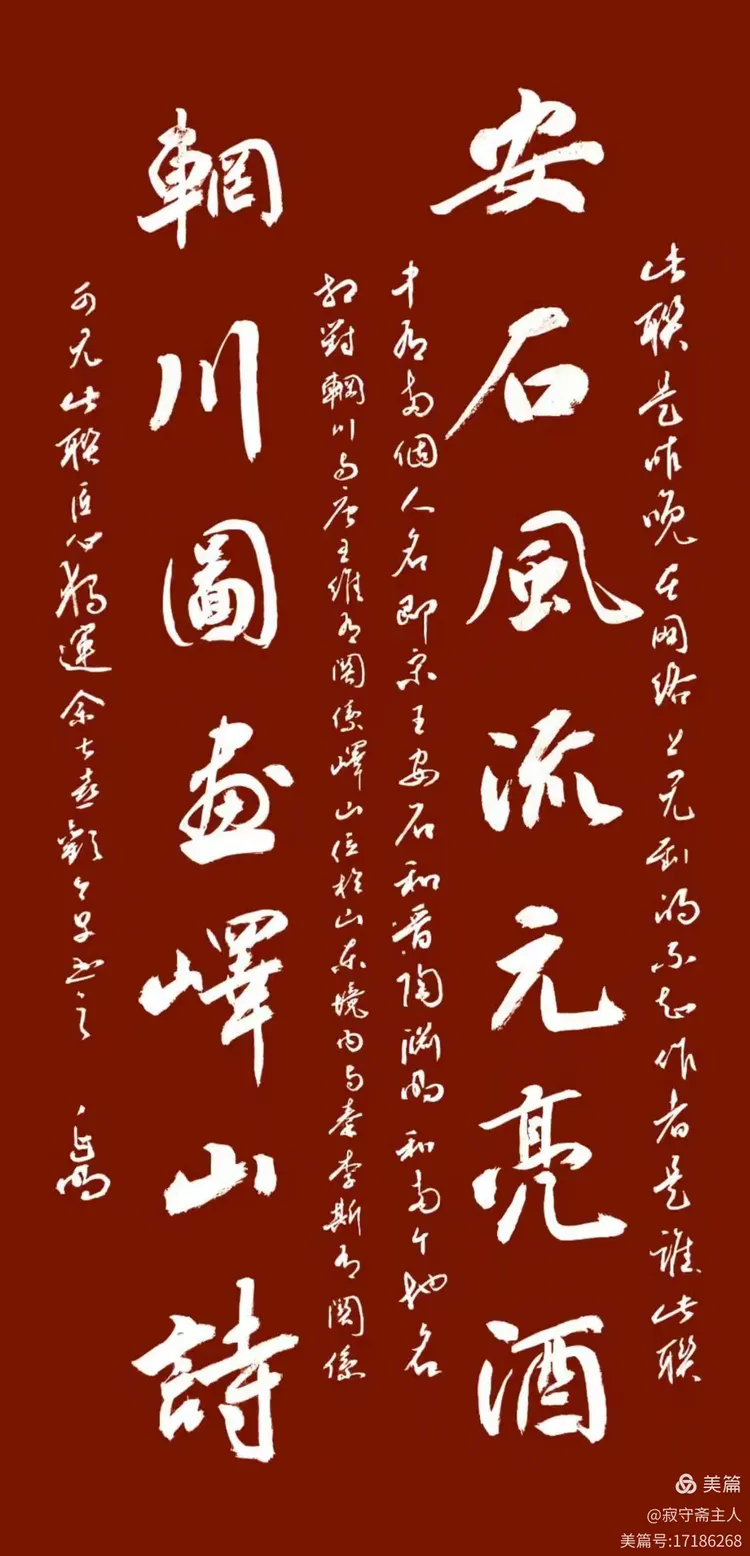 安石風流元亮酒
輞川圖畫嶧山詩
此聯是昨晚在网络上見到的不知作者是誰此聯
中有两個人名即宋王安石和晋陶渊明和两个地名
相對輞川与唐王維有関係嶧山位於山东境内与秦李斯有関係
可見此聯匠心獨運余大喜歡今早书之
美篇
@寂守斋主人
美篇号:17186268